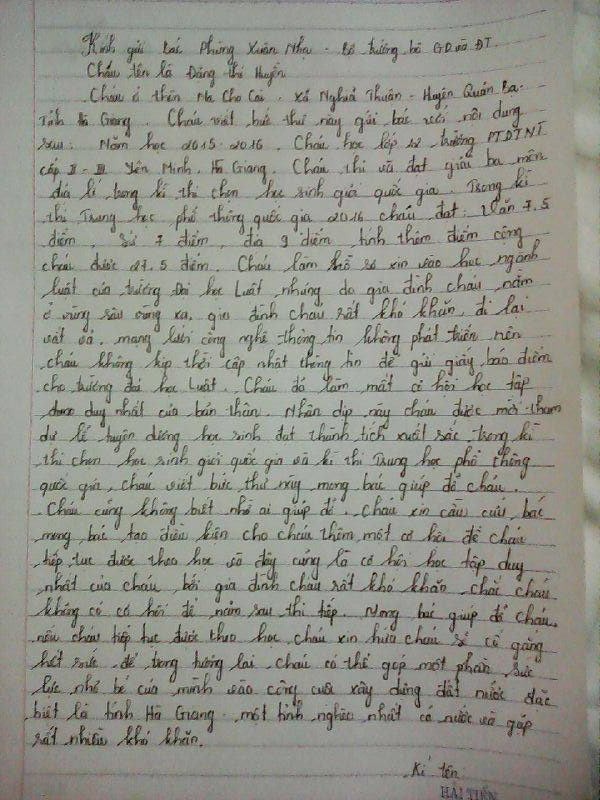 Kính gửi bác Phùng Xuân Nhạ - Bộ trưởng bộ GD và ĐT.
Cháu tên là Đặng Thị Huyền
Cháu ở thôn Na Cho Cai - xã Nghĩa Thuận - Huyện Quản Bạ -
Tỉnh Hà Giang. Cháu viết bức thư này gửi bác với nội dung
sau: Năm học 2015-2016. Cháu học lớp 12 trường PTDTNT
cấp II - III Yên Minh. Hà Giang. Cháu thi và đạt giải ba môn
địa lí trong kì thi chọn học sinh giỏi quốc gia. Trong kì
thi Trung học phổ thông quốc gia 2016 cháu đạt: Văn 7.5
điểm, sử 7 điểm, địa 9 điểm, tính thêm điểm cộng
cháu được 27.5 điểm. Cháu làm hồ sơ xin vào học ngành
luật của trường Đại học Luật, nhưng do gia đình cháu nằm
ở vùng sâu vùng xa, gia đình cháu rất khó khăn, đi lại
vất vả, mạng lưới công nghệ thông tin không phát triển nên
cháu không kịp thời cập nhật thông tin để gửi giấy báo điểm
cho trường đại học Luật. Cháu đã làm mất cơ hội học tập
được duy nhất của bản thân. Nhân dịp này cháu được mời tham
dự lễ tuyên dương học sinh đạt thành tích xuất sắc trong kì
thi chọn học sinh giỏi quốc gia và kì thi Trung học phổ thông
quốc gia, cháu viết bức thư này mong bác giúp đỡ cháu.
Cháu cũng không biết nhờ ai giúp đỡ. Cháu xin cầu cứu bác
mong bác tạo điều kiện cho cháu thêm một cơ hội để cháu
tiếp tục được theo học vì đây cũng là cơ hội học tập duy
nhất của cháu, bởi gia đình cháu rất khó khăn, chắc cháu
không có cơ hội để năm sau thi tiếp. Mong bác giúp đỡ cháu,
nếu cháu tiếp tục được theo học cháu xin hứa cháu sẽ cố gắng
hết sức để trong tương lai cháu có thể góp một phần sức
lực nhỏ bé của mình vào công cuộc xây dựng đất nước đặc
biệt là tỉnh Hà Giang - một tỉnh nghèo nhất cả nước và gặp
rất nhiều khó khăn.
Kí tên
HẢI TIẾN